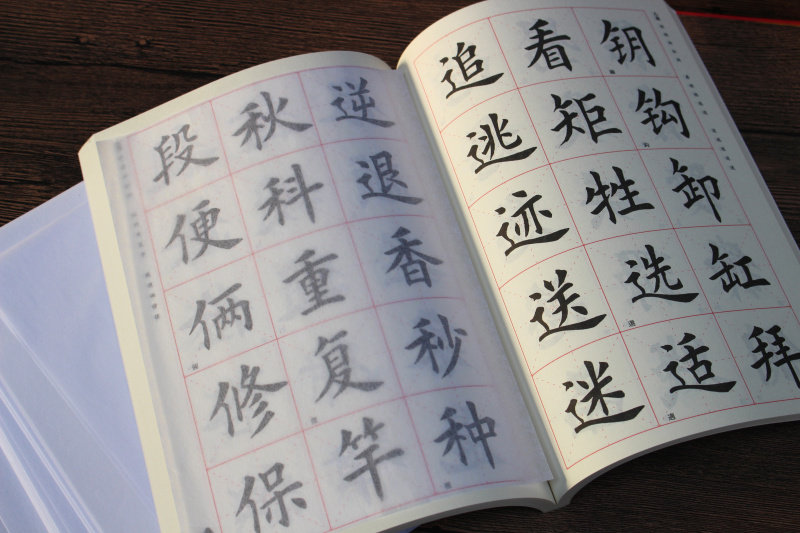 钥钩卸缸拜
看矩牲选适
追逃迹送迷
逆退香秒种
秋科重复竿
段便俩修保